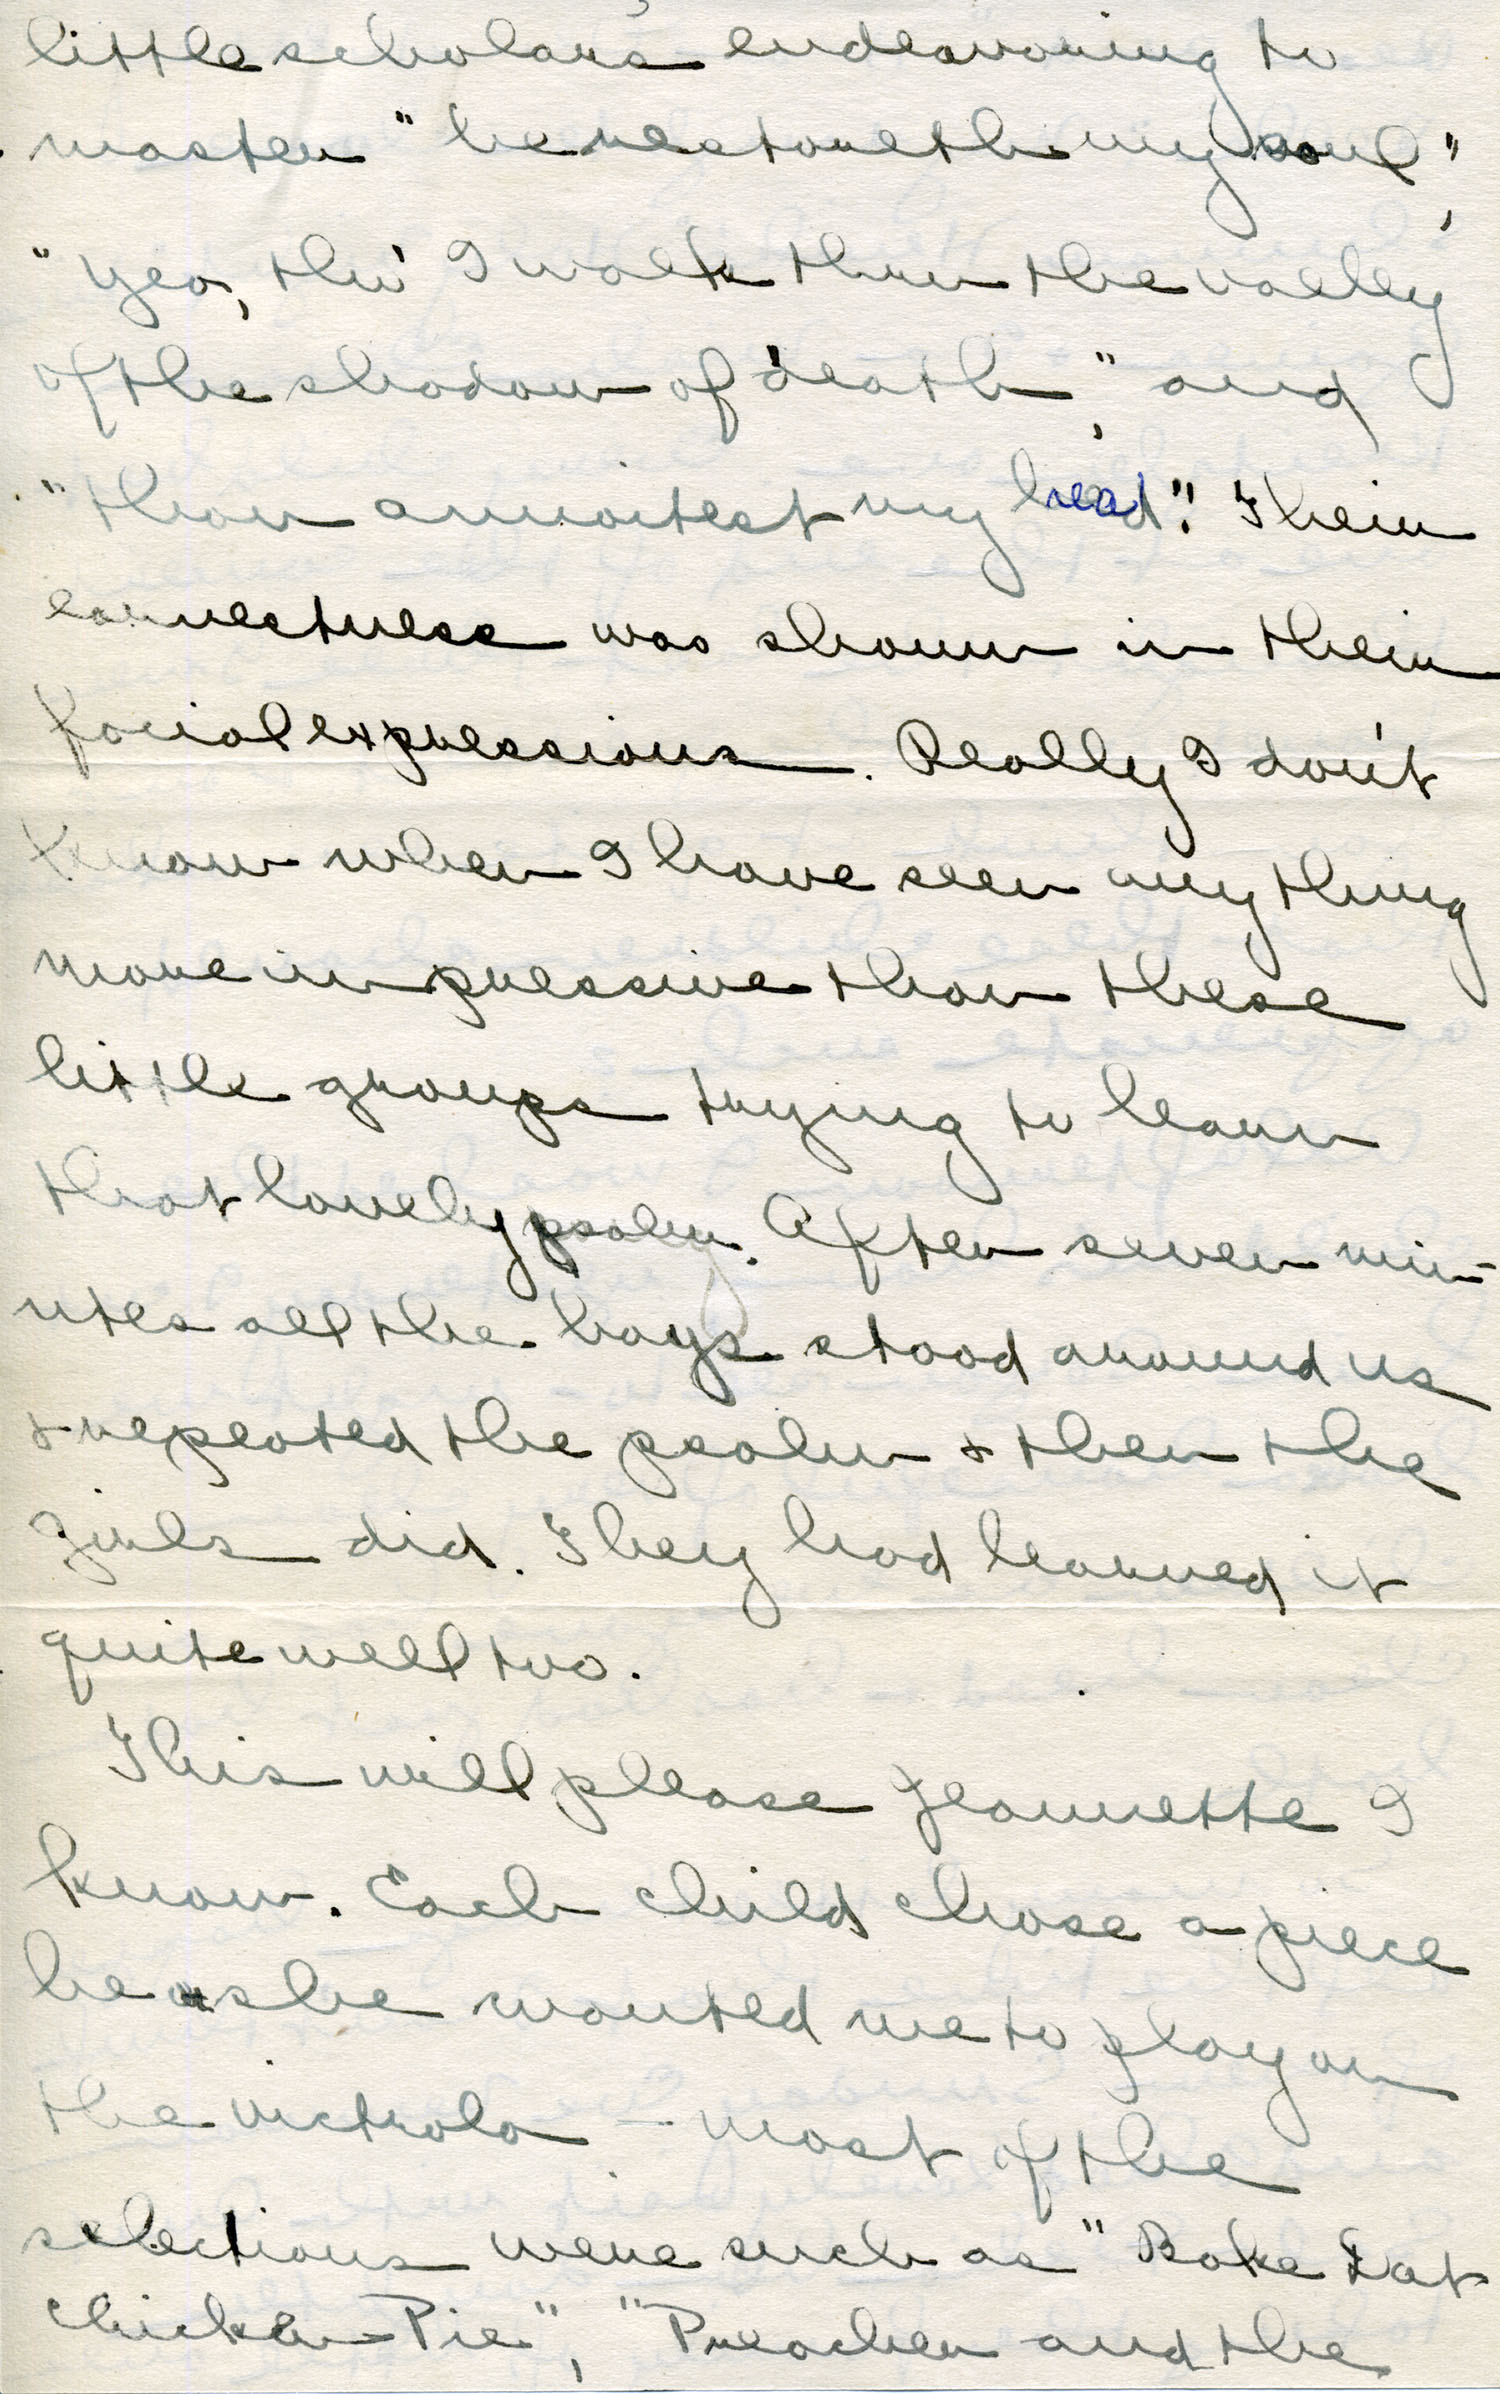 little scholars endeavoring to
master "he restoreth my soul",
"Yea, tho' I walk thru the valley
of the shadow of death," and
"thou annoitest my head". Their
earnestness was shown in their
facial expressions. Really I don't
know when I have seen anything
more impressive than these
little groups trying to learn
that lovely psalm. After seven min-
utes all the boys stood around us
& repeated the psalm & then the
girls did. They had learned it
quite well too.
This will please Jeannette I
know. Each child chose a piece
he or she wanted me to play on
the victrola - most of the
selections were such as "Bake Dat
Chicken Pie", "Preacher and the